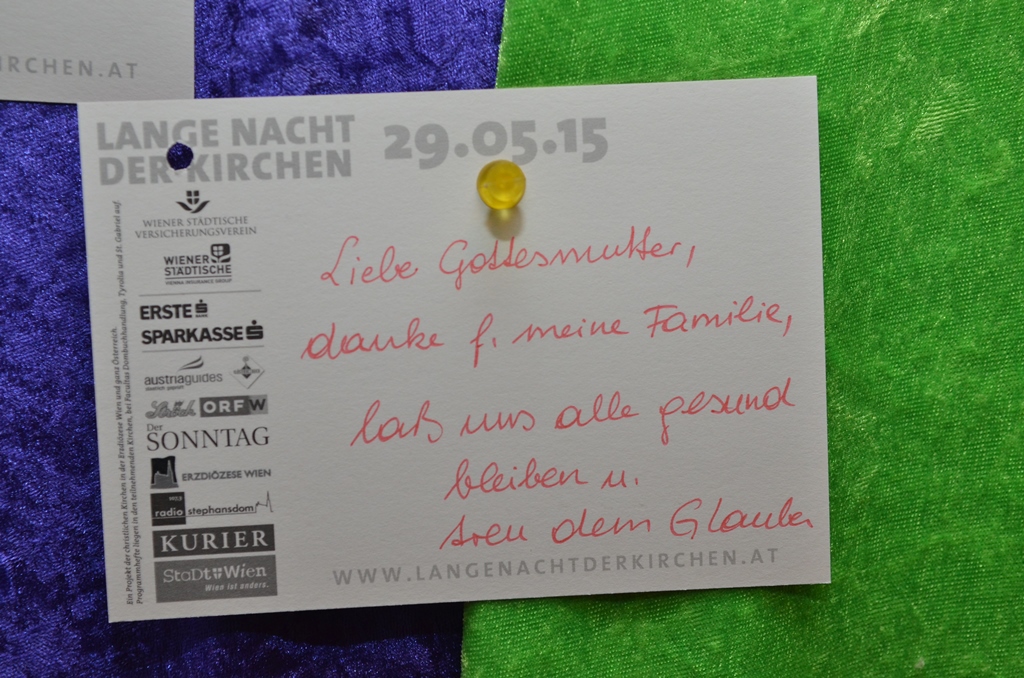 IRCHEN.AT
LANGE NACHT
DER KIRCHEN
29.05.15
WIENER STÄDTISCHE
VERSICHERUNGSVEREIN
WIENER
STÄDTISCHE
VIENNA INSURANCE GROUP
ERSTE
SPARKASSE
austriaguides
ORF W
Der
SONNTAG
ERZDIÖZESE WIEN
radio stephansdom
KURIER
StaDt Wien
Wien ist anders.
Ein Projekt der christlichen Kirchen in der Erzdiözese Wien und ganz Österreich.
Programmhefte liegen in den teilnehmenden Kirchen, bei Facultas Dombuchhandlung, Tyrolia und St. Gabriel auf.
Liebe Gottesmutter,
danke f. meine Familie,
laß uns alle gesund
bleiben u.
treu dem Glauben
WWW.LANGENACHTDERKIRCHEN.AT